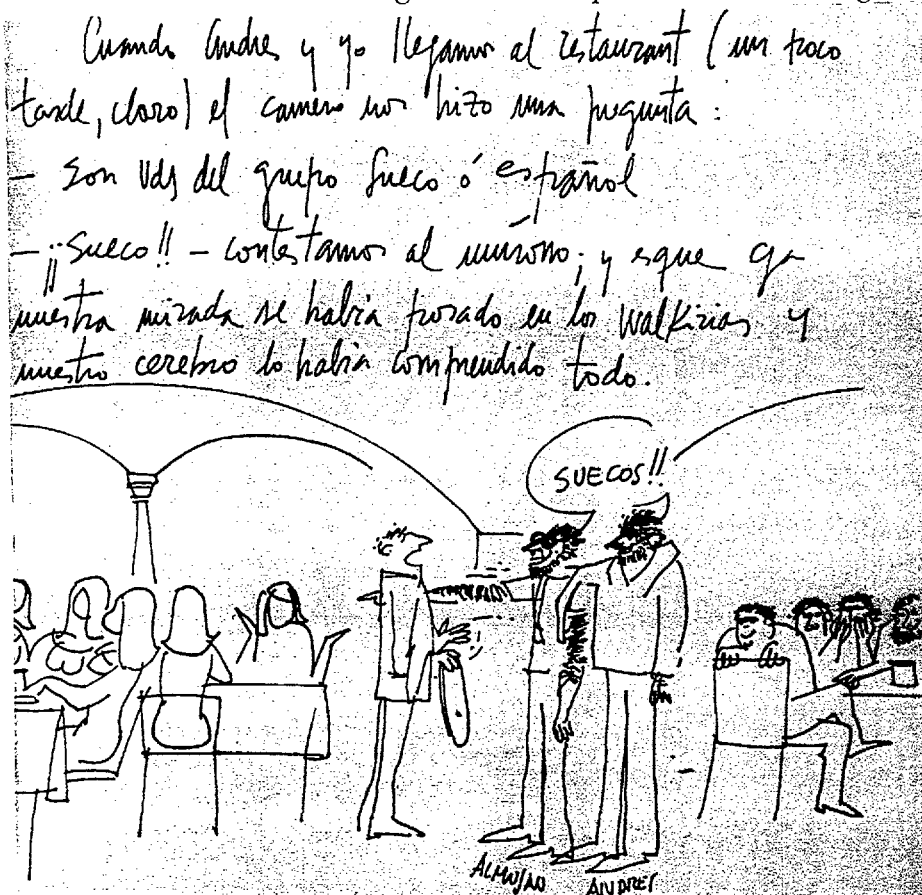 Cuando Andres y yo llegamos al restaurant (un poco
tarde, claro) el camero nos hizo una pregunta:
- Son Vds del grupo sueco ó español
- ¡¡Sueco!! - contestamos al unísono; y esque ya
nuestra mirada se habia posado en las Walkirias y
nuestro cerebro lo habia comprendido todo.
SUECOS!!
ANDRES